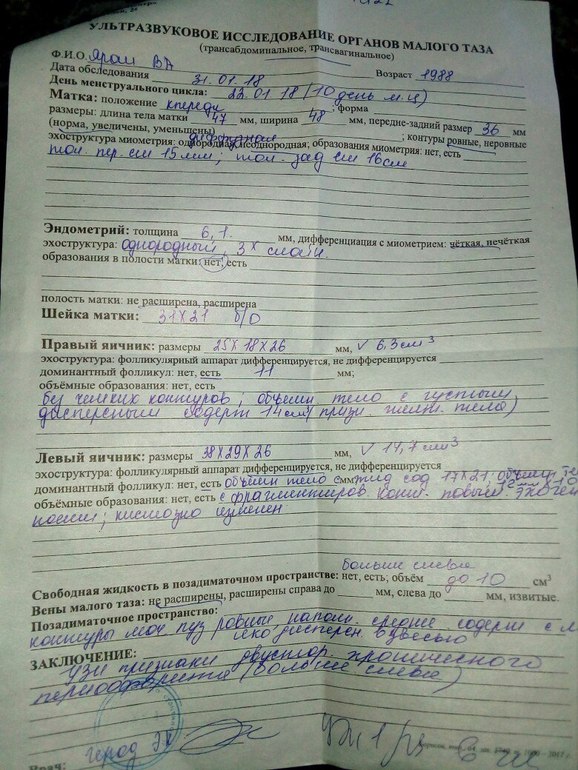 УЛЬТРАЗВУКОВОЕ ИССЛЕДОВАНИЕ ОРГАНОВ МАЛОГО ТАЗА
(трансабдоминальное, трансвагинальное)
Ф.И.О. ВА
Дата обследования 31.01.18 Возраст 1988
День менструального цикла: 22.01.18 (10 день м.ц)
Матка: положение кпереди форма
размеры: длина тела матки 47 мм, ширина 48 мм, передне-задний размер 36 мм
(норма, увеличены, уменьшены) ; контуры ровные, неровные
эхоструктура миометрия: однородная, неоднородная; образования миометрия: нет, есть
тол. пер. ст 15мм; тол. зад ст 16см
Эндометрий: толщина 6,1 мм, дифференциация с миометрием: чёткая, нечёткая
эхоструктура: однородный, 3х слойн.
образования в полости матки: нет, есть
полость матки: не расширена, расширена
Шейка матки: 31х21 б/о
Правый яичник: размеры 25х18х26 мм, v 6,3 см³
эхоструктура: фолликулярный аппарат дифференцируется, не дифференцируется
доминантный фолликул: нет, есть 11 мм;
объёмные образования: нет, есть
без четких контуров; объемн тело с густым
дисперсным содерж 14 см (призн. желт. тела)
Левый яичник: размеры 38х29х26 мм, v 14,7 см³
эхоструктура: фолликулярный аппарат дифференцируется, не дифференцируется
доминантный фолликул: нет, есть объемн тело с жид сод 17х21
объёмные образования: нет, есть с фрагментиров конт. повыш.
кистозно изменен
больше слева
Свободная жидкость в позадиматочном пространстве: нет, есть; объём до 10 см³
Вены малого таза: не расширены, расширены справа до мм, слева до мм, извитые.
Позадиматочное пространство:
контуры моч пуз ровные, наполн. среднее содерж с
дисперсн взвесью
ЗАКЛЮЧЕНИЕ:
узи признаки двустор. хронического
периоофорита (больше слева)
Врач: